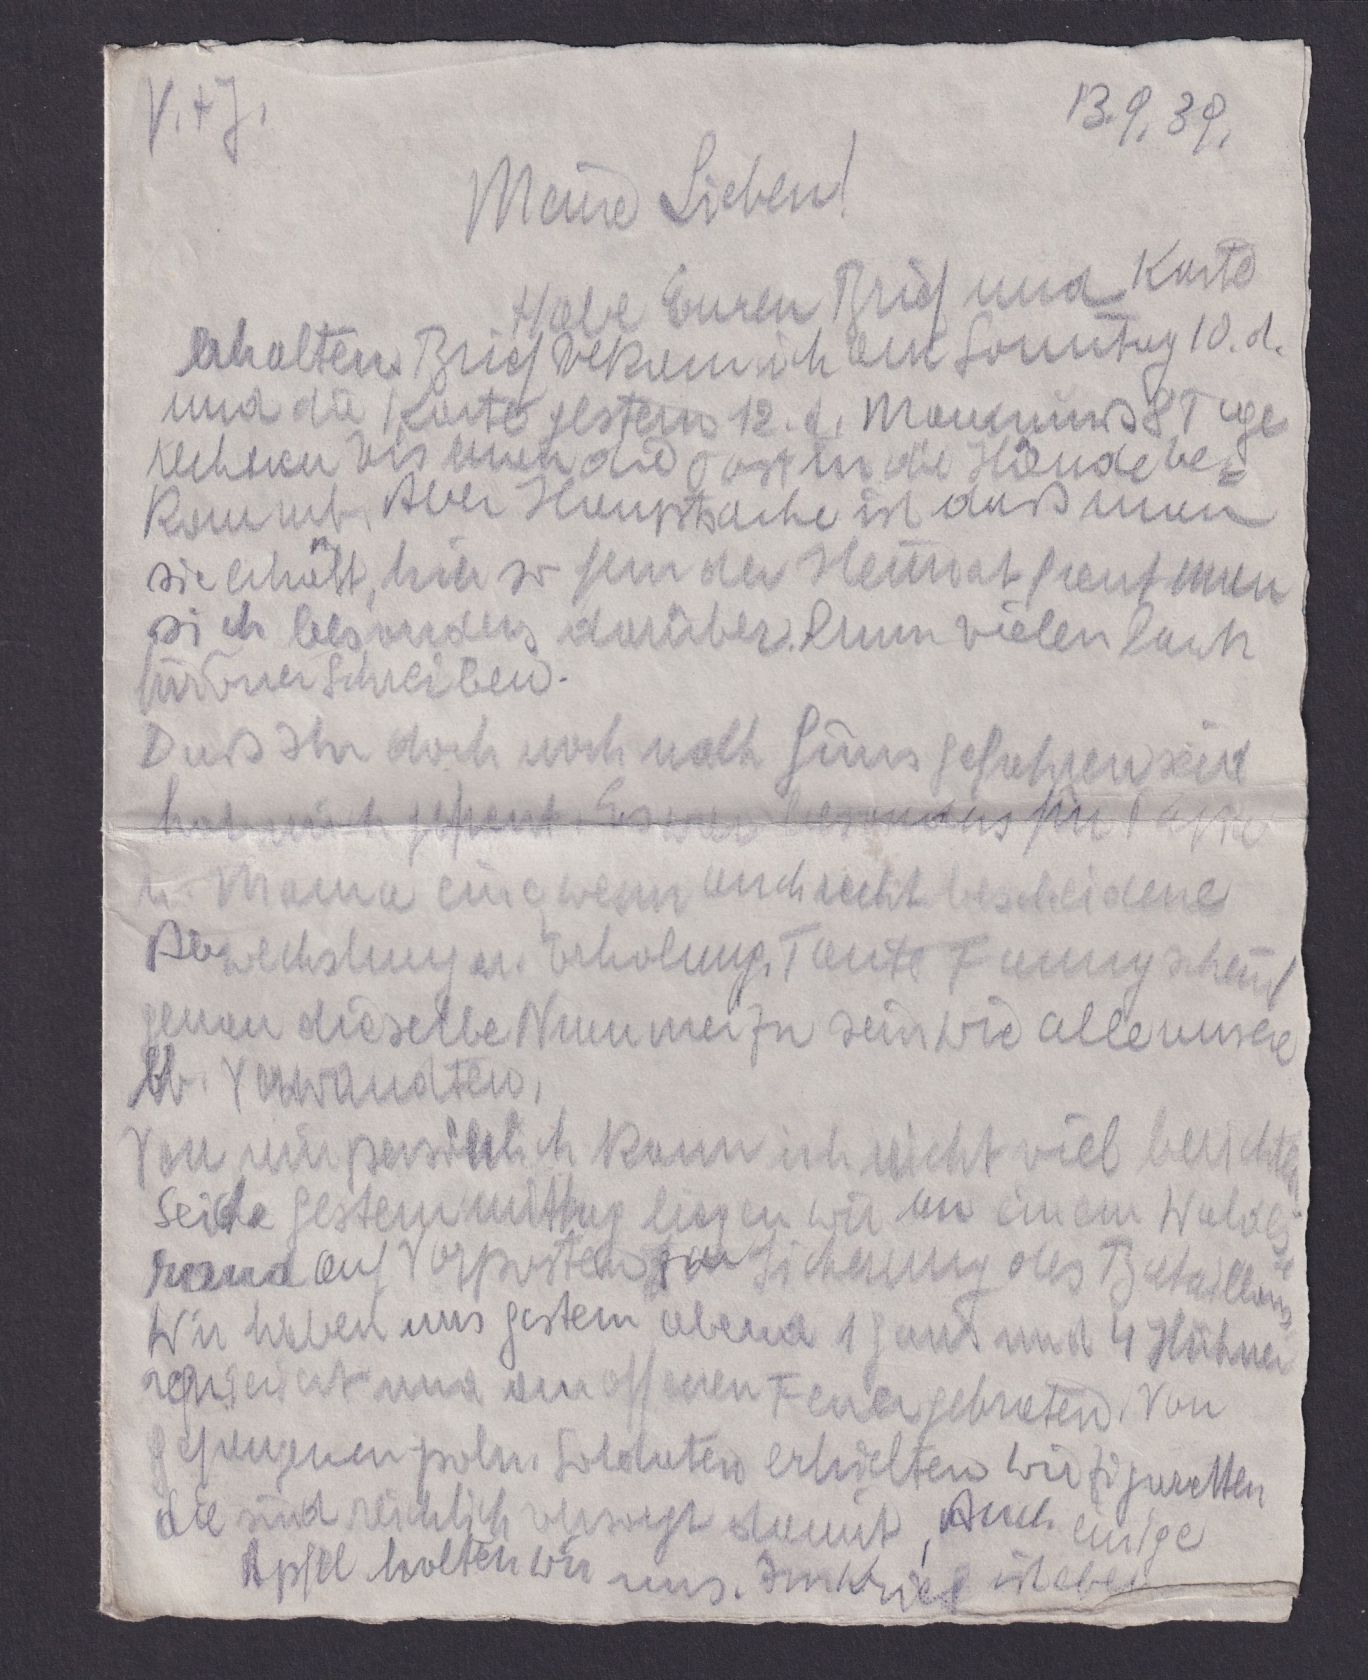 V. + J. 13.9.39.
Meine Lieben!
Habe Euren Brief und Karte
erhalten. Brief bekam ich am Sonntag 10. d.
und die Karte gestern 12. d. Man muß 8 Tage
rechnen bis man die Post in die Hände be=
kommt. Aber Hauptsache ist daß man
sie erhält, hier so fern der Heimat freut man
sich besonders darüber. Drum vielen Dank
für Euer Schreiben.
Daß Ihr doch noch nach Güns gefahren seid
hat mich gefreut. Es war besonders für Papa
u. Mama eine wenn auch recht bescheidene
Abwechslung u. Erholung. Tante Fanny scheint
genau dieselbe Nummer zu sein wie alle unsere
lb. Verwandten.
Von mir persönlich kann ich nicht viel berichten
Seit gestern mittag liegen wir an einem Waldes=
rand auf Vorposten zur Sicherung des Bataillons
Wir haben uns gestern abend 1 Gans und 4 Hühner
requiriert und am offenen Feuer gebraten. Von
gefangenen poln. Soldaten erhielten wir Zigaretten
die sind reichlich versorgt damit, Auch einige
Äpfel holten wir uns. Im Krieg ist eben